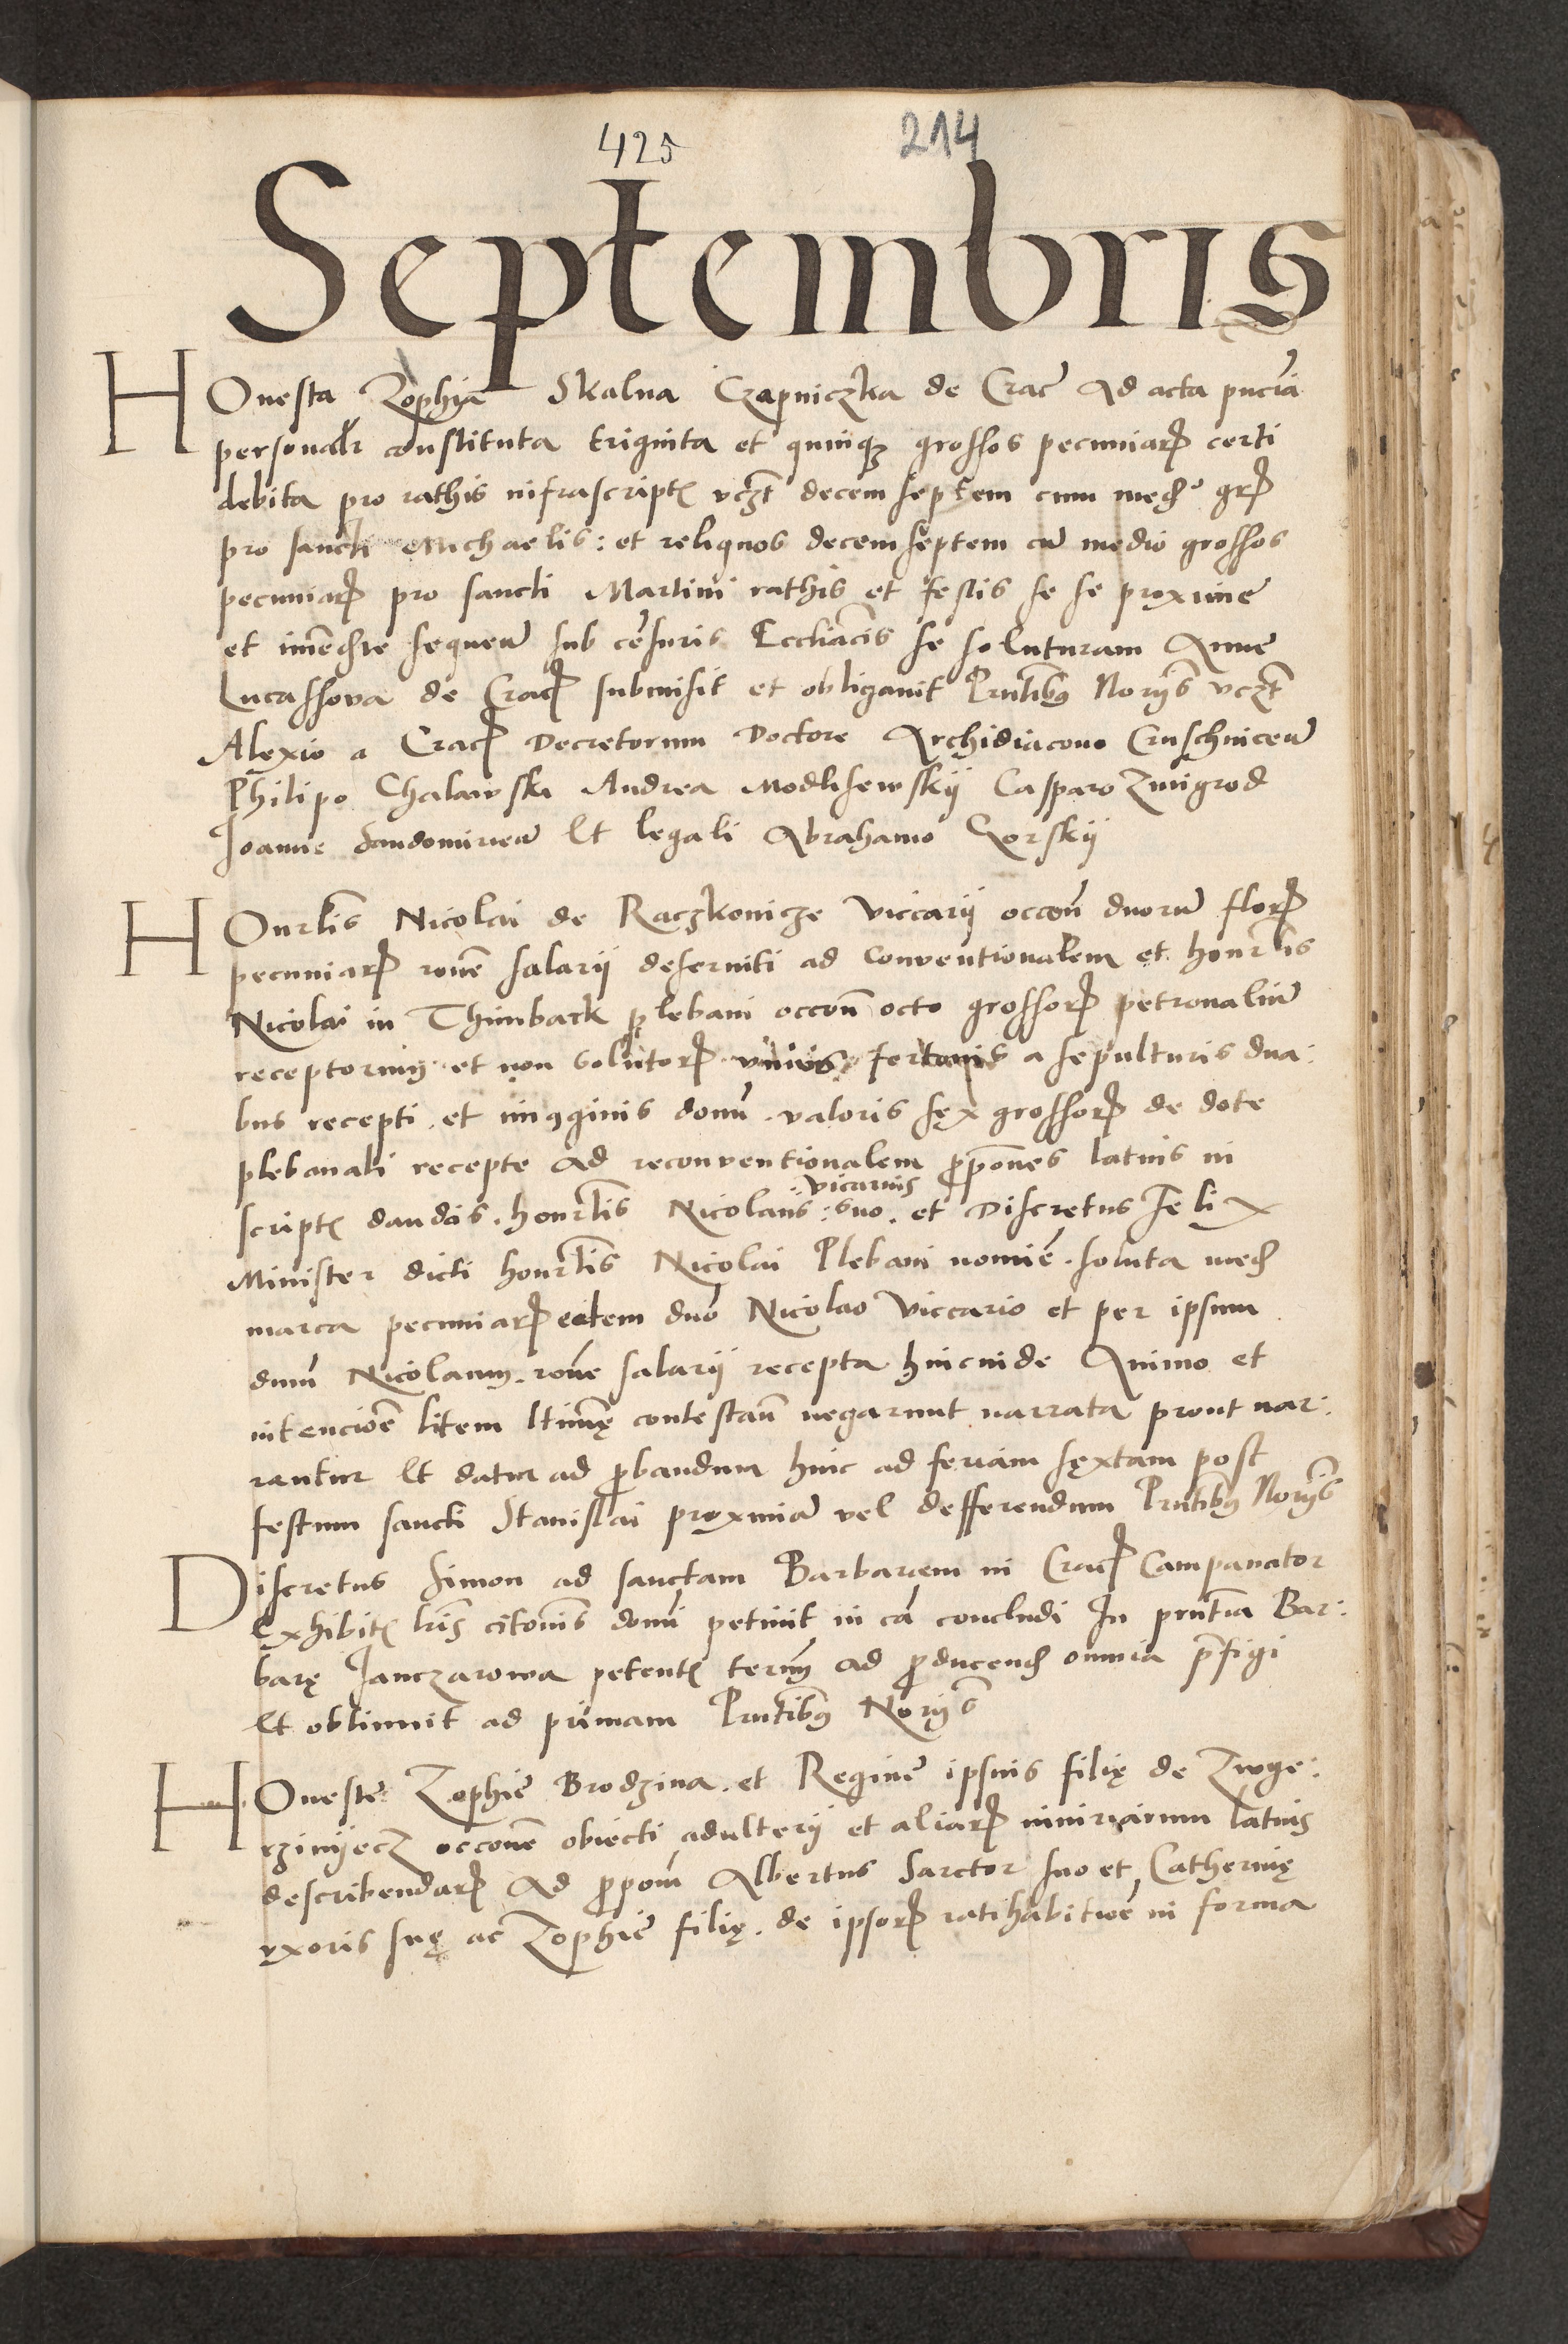 425 214
Septembris
Honesta Zophia Skalna Czapniczka de Crac Ad acta pncia
personalr constituta triginta et quinq grossos pecuniar certi
debita pro rathis infrascript vczt decem septem cum med° gr
pro sancti Michaelis : et reliquos decemseptem cu medio grossos
pecuniar pro sancti Martini rathis et festis se se proxime
et imedte sequen sub cesuris Ecclіacis se soluturam Anne
Lucassova de Crac submisit et obligavit Prntibus Norijs vczt
Alexio a Crac Decretorum Doctore Archidiacono Cruschvicen
Philipo Chalawski Andrea Modlisewskij Casparo Zmigrod
Joanne Sandomirien Et legali Abrahamo Gorskij
Honrlis Nicolai de Raczkovicze Viccarij occon duoru flor
pecuniar rone salarij deserviti ad Conventionalem et honrlis
Nicolai in Thimbark plebani occon octo grossor petronaliu
receptorum et non solutor unius fertonis a sepulturis dua:
bus recepti . et imaginis domu . valoris sex grossor de dote
plebanali recepte Ad reconventionalem propones latius in
script dandas . honrlis Nicolaus : vicarius suo . et Discretus Felix
Minister dicti honrlis Nicolai Plebani nomie . soluta med
marca pecuniar eidem dno Nicolao Viccario et per ipsum
dnum Nicolaum . rone salarij recepta hincinde Animo et
intencioe litem ltimę contestan negarunt narrata prout nar:
rantur Et datur ad probandum hinc ad feriam sextam post
festum sancti Stanislai proxima vel defferendum Prntibus Norijs
Discretus Simon ad sanctam Barbaram in Crac Campanator
Exhibit lris citonis domi petivit in ca concludi In prntia Bar:
barę Janczarowa petent termin ad producend omnia prefigi
Et obtinuit ad primam Prntibus Norijs
Honeste Zophie Brodzina . et Regine ipsius filię de Zwge:
rzinijecz occone obiecti adulterij et aliar iniuriarum latius
describendar Ad propom Albertus Sarctor suo et Catherinę
uxoris suę ac Zophie filię . de ipsor ratihabitioe in forma